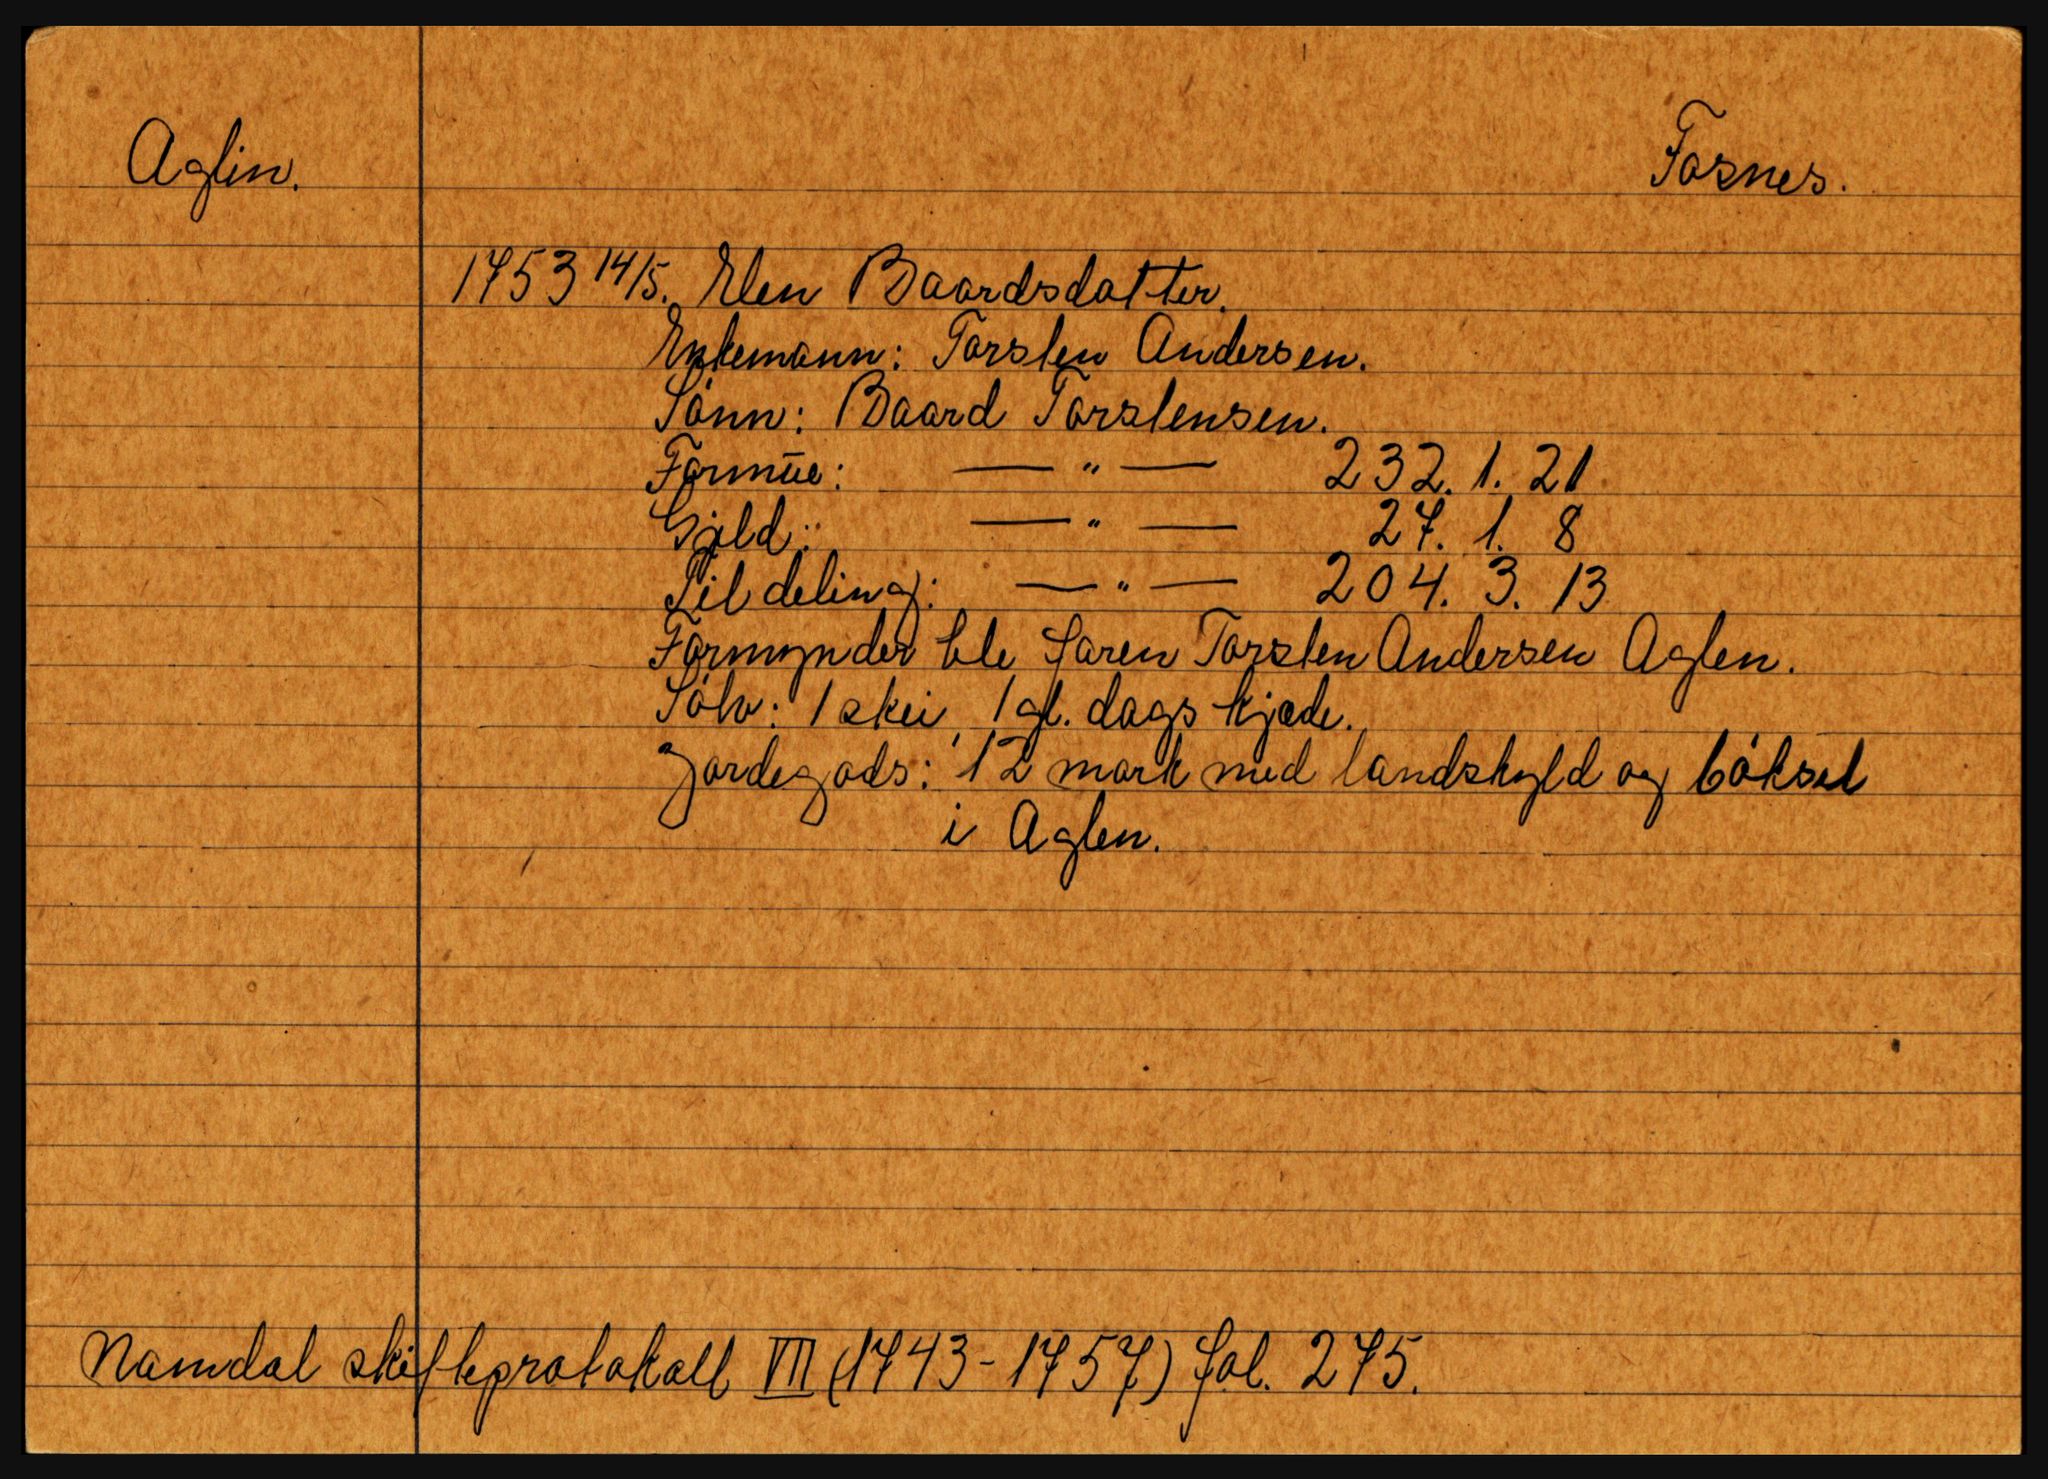 Aglen.
Fosnes.
1753 14/5. Elen Baardsdatter.
Enkemann: Torsten Andersen.
Sönn: Baard Torstensen.
Formue: — " — 232. 1. 21
Gjeld: — " — 27. 1. 8
Til deling: — " — 204. 3. 13
Formynder ble faren Torsten Andersen Aglen.
Sölv: 1 skei, 1 gl. dags kjede.
Jordegods: 12 mark med landskyld og böksel
i Aglen.
Namdal skifteprotokoll VII (1743-1757) fol. 275.